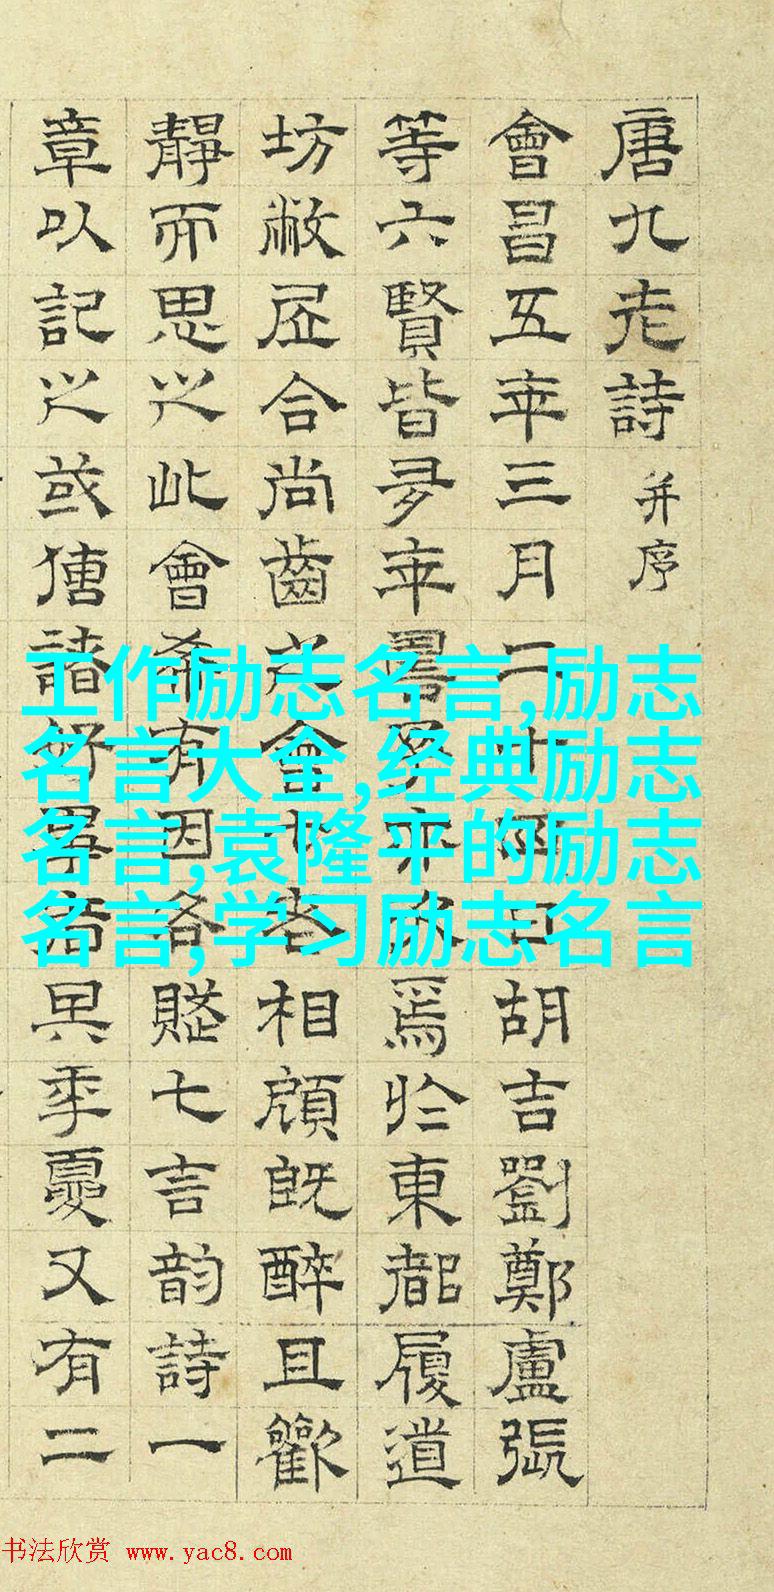 唐九老詩并序
會昌五年三月二十四日胡吉劉鄭盧張
等六賢皆多年壽予亦次焉於東都履道
坊敝居合尚齒之會七老相顧既醉且歡
靜而思之此會希有因各賦七言韵詩一
章以記之或傳諸好事者其年夏又有二
工作励志名言,励志
名言大全,经典励志
名言,袁隆平的励志
名言,学习励志名言
书法欣赏 www.yac8.com